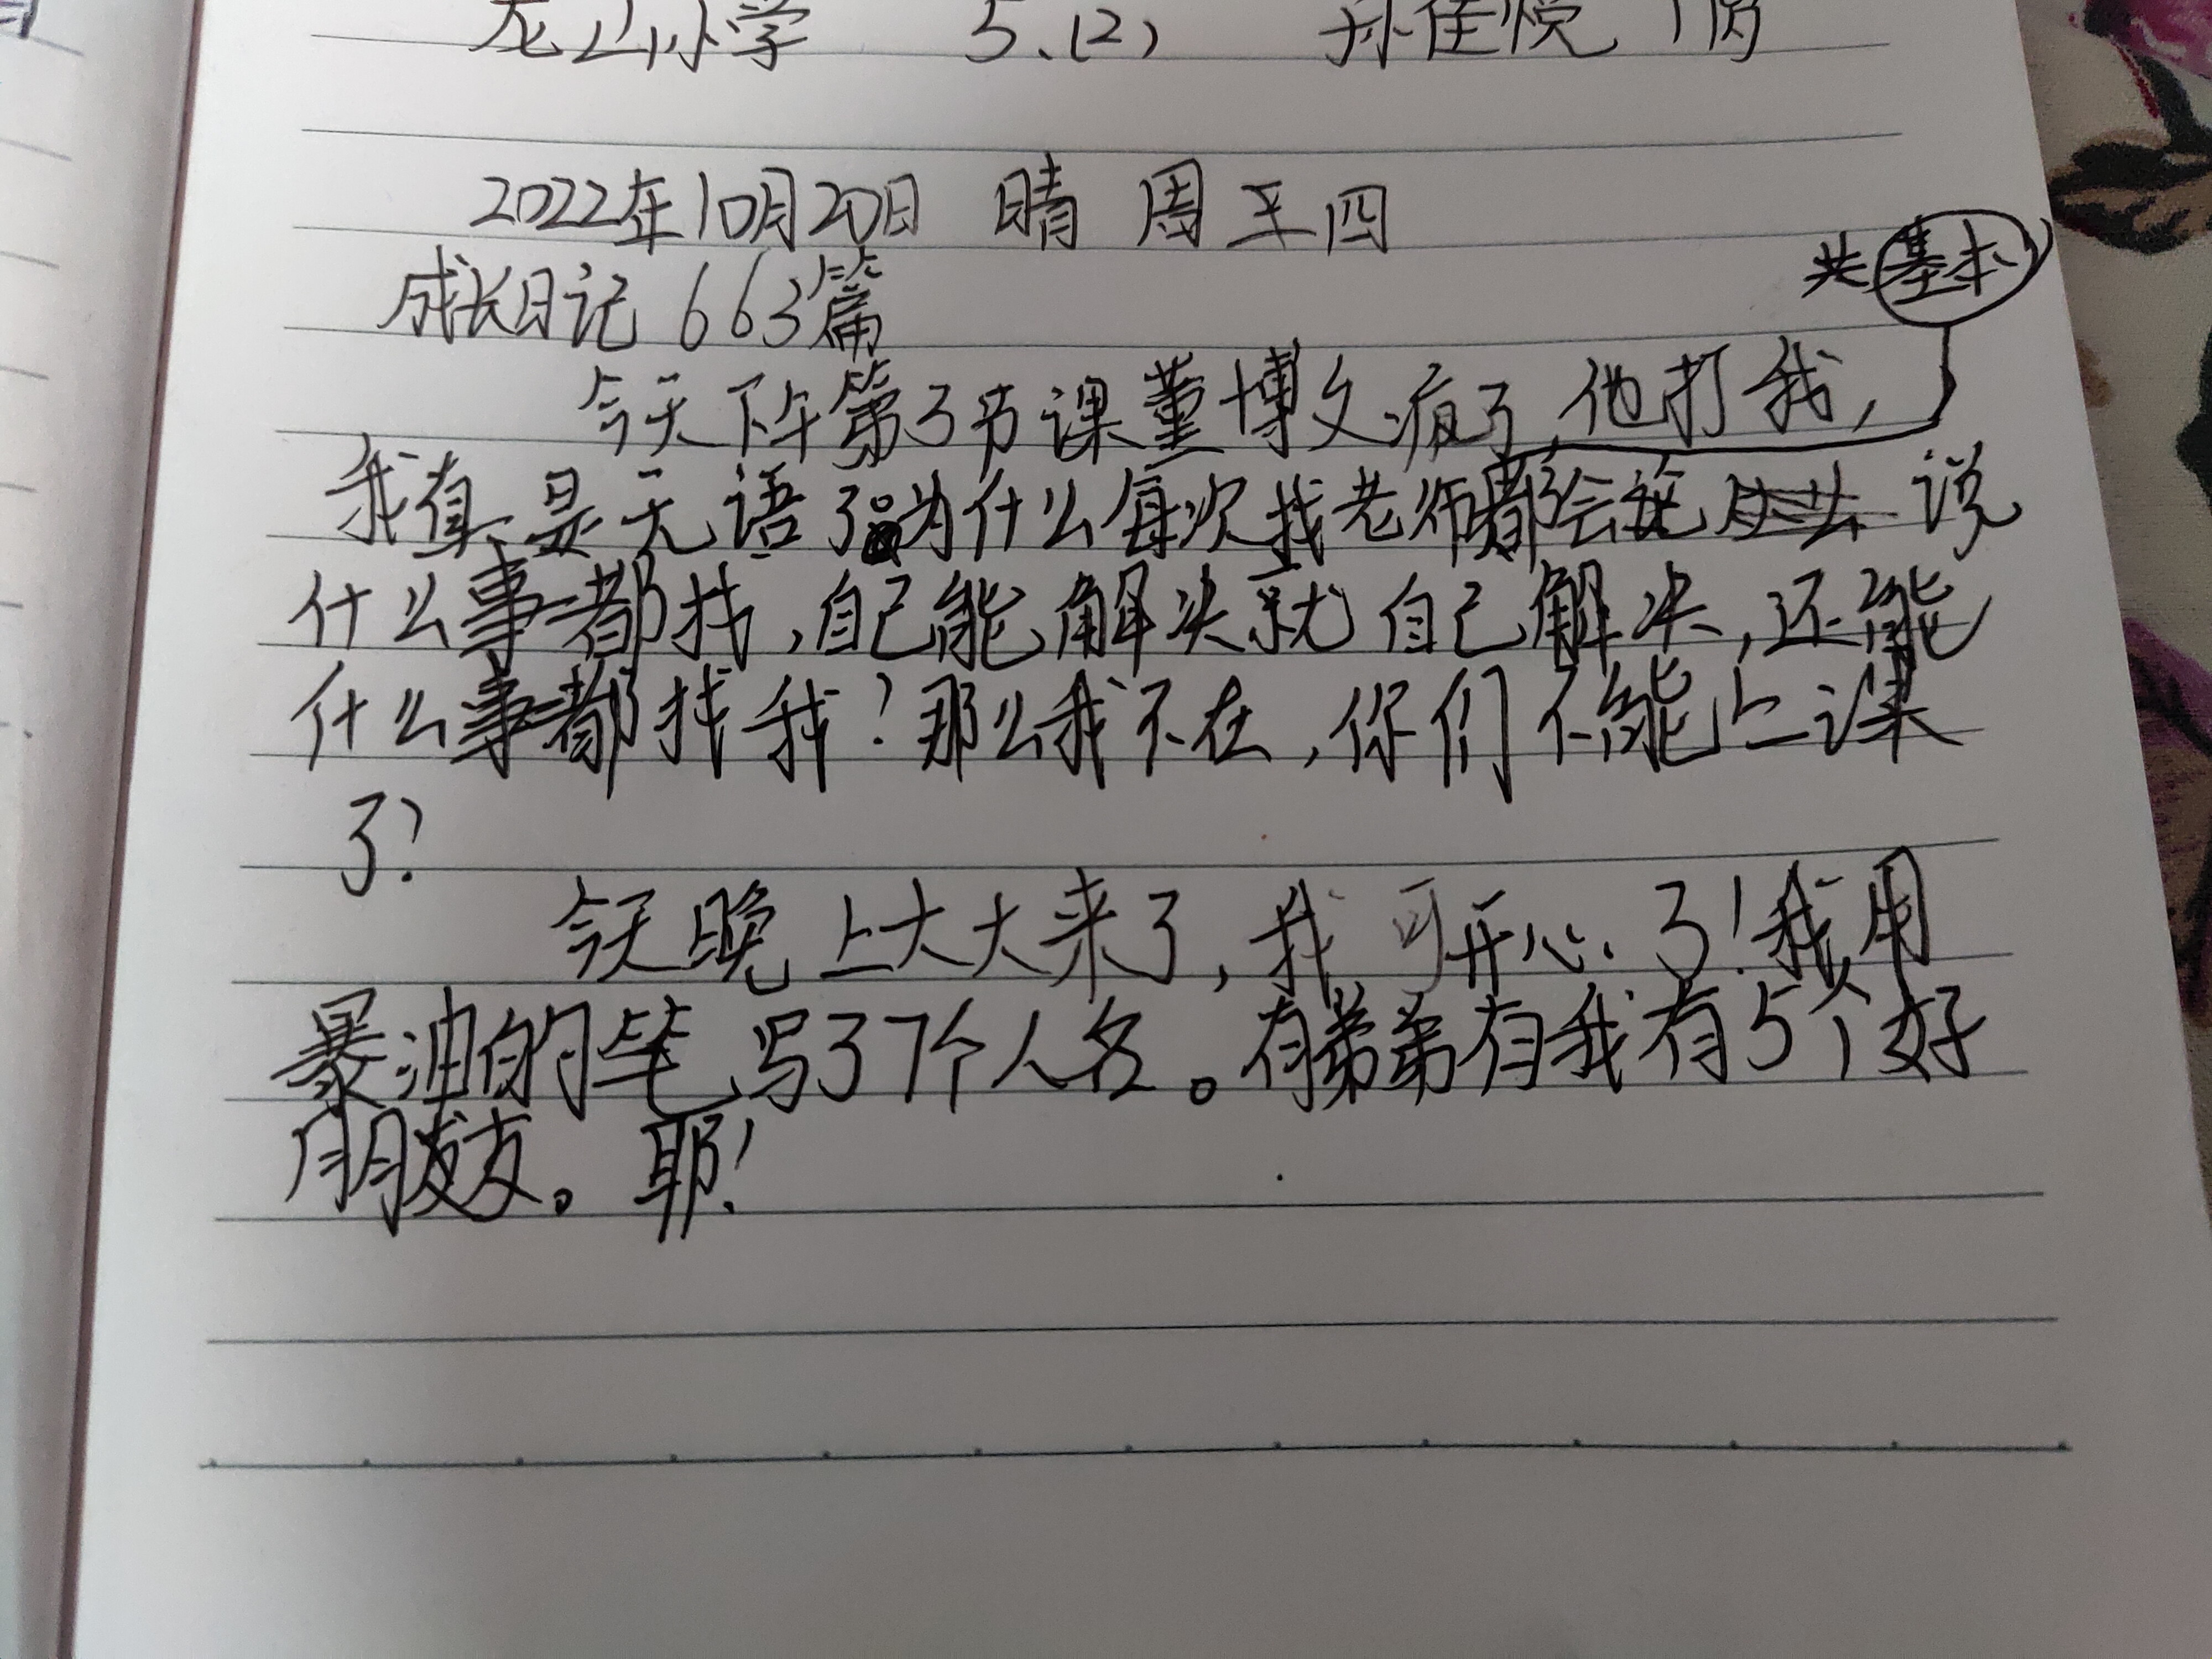 龙山小学 5.(2) 孙佳悦 1份
2022年10月20日 晴 周五四
成长日记 663篇
基本
今天下午第3节课董博文疯了,他打我,
我真是无语了。为什么每次找老师都会说 说
什么事都找,自己能解决就自己解决,还能
什么事都找我?那么我不在,你们不能上课
了?
今天晚上大大来了,我可开心了!我用
暴油的笔写了7个人名。有弟弟有我有5个好
朋友。耶!